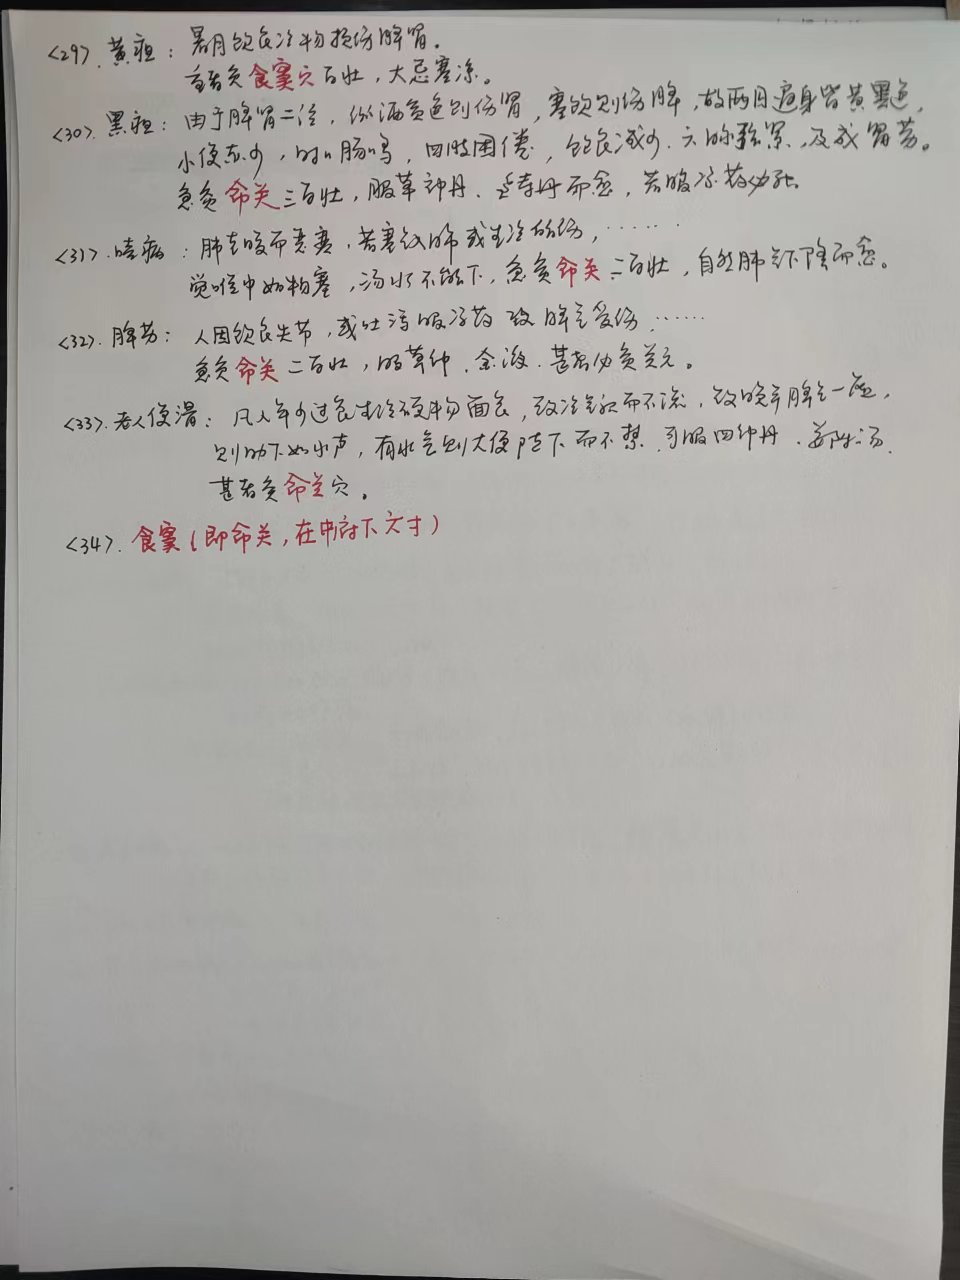 <29>. 黄疸：暑月饮食冷物损伤脾胃。
重者灸食窦穴百壮，大忌寒凉。
<30>. 黑疸：由于脾胃二经，纵酒贪色则伤肾，寒饮则伤脾，故两目遍身皆黄黑色，
小便赤少，时时肠鸣，四肢困倦，饮食减少，六脉弦紧，及成肾劳。
急灸命关三百壮，服草神丹、延寿丹而愈，若服凉药必死。
<31>. 噎病：肺气咳而喜寒，若寒气入肺或生冷所伤，……
觉喉中如物塞，汤水不能下，急灸命关二百壮，自然肺气下降而愈。
<32>. 脾劳：人因饮食失节，或吐泻服凉药致脾气受伤，……
急灸命关二百壮，服草神、金液，甚者必灸关元。
<33>. 老人便滑：凡人年少过食生冷硬物面食，致冷气积而不流，致晚年脾气一虚，
则胁下如水声，有水气则大便随下而不禁，可服四神丹、姜附汤，
甚者灸命关穴。
<34>. 食窦（即命关，在中府下六寸）